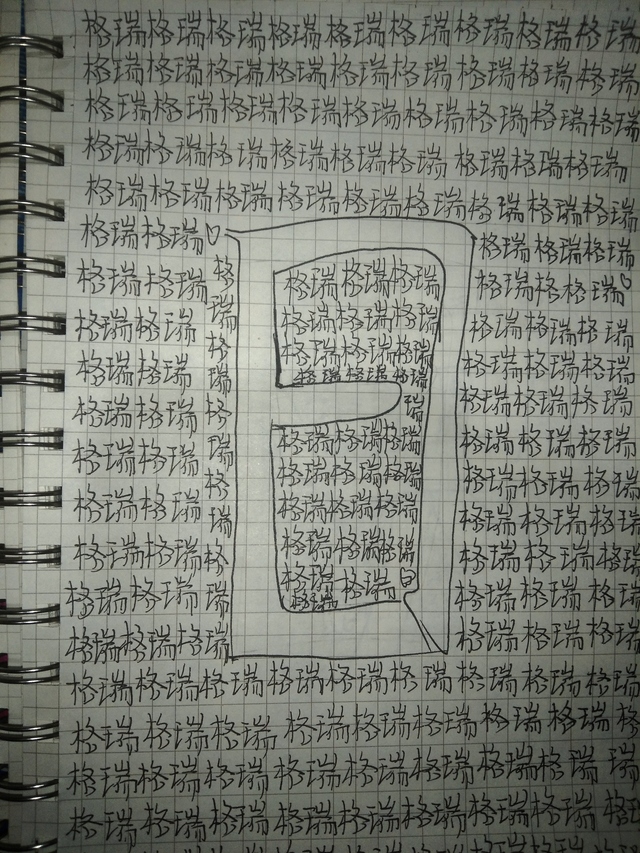 格瑞格瑞格瑞格瑞格瑞格瑞格瑞格瑞格瑞
格瑞格瑞格瑞格瑞格瑞格瑞格瑞格瑞格瑞
格瑞格瑞格瑞格瑞格瑞格瑞格瑞格瑞格瑞
格瑞格瑞格瑞格瑞格瑞格瑞格瑞格瑞格瑞
格瑞格瑞格瑞格瑞格瑞格瑞格瑞格瑞格瑞
格瑞格瑞 格瑞格瑞格瑞
格瑞格瑞格 格瑞格瑞格瑞 格瑞格瑞格瑞
格瑞格瑞瑞 格瑞格瑞格瑞 格瑞格瑞格瑞
格瑞格瑞格 格瑞格瑞格瑞 格瑞格瑞格瑞
瑞 格瑞格瑞格瑞
格瑞格瑞格 瑞 格瑞格瑞格瑞
格瑞格瑞瑞 格瑞格瑞格瑞 格瑞格瑞格瑞
格瑞格瑞格 格瑞格瑞格瑞 格瑞格瑞格瑞
瑞 格瑞格瑞格瑞 格瑞格瑞格瑞
格瑞格瑞格 格瑞格瑞格瑞 格瑞格瑞格瑞
格瑞格瑞瑞 格瑞格瑞 格瑞格瑞格瑞
格瑞
格瑞格瑞格瑞 格瑞格瑞格瑞
格瑞格瑞格瑞格瑞格瑞格瑞格瑞格瑞格瑞
格瑞格瑞格瑞格瑞格瑞格瑞格瑞格瑞格
格瑞格瑞格瑞格瑞格瑞格瑞格瑞格瑞瑞
格瑞格瑞格瑞格瑞格瑞格瑞格瑞格瑞格